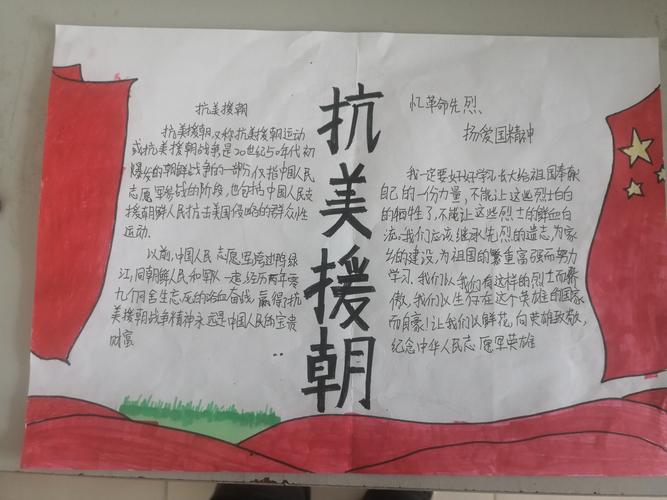 抗美援朝
抗美援朝又称抗美援朝运动
或抗美援朝战争是20世纪50年代初
爆发的朝鲜战争的一部分仅指中国人民
志愿军参战的阶段,也包括中国人民支
援朝鲜人民抗击美国侵略的群众性
运动.
以前,中国人民志愿军跨过鸭绿
江,同朝鲜人民和军队一起,经历两年零
九个月舍生忘死的浴血奋战,赢得了抗
美援朝战争精神永远是中国人民的宝贵
财富
抗美援朝
忆革命先烈,
扬爱国精神
我一定要好好学习,长大给祖国奉献
自己的一份力量,不能让这些烈士白白
的牺牲了,不能让这些烈士的鲜血白
流.我们应该继承先烈的遗志,为家
乡的建设,为祖国的繁重富强而努力
学习.我们以我们有这样的烈士而骄
傲,我们以生存在这个英雄的国家
而自豪!让我们以鲜花,向英雄致敬,
纪念中华人民志愿军英雄